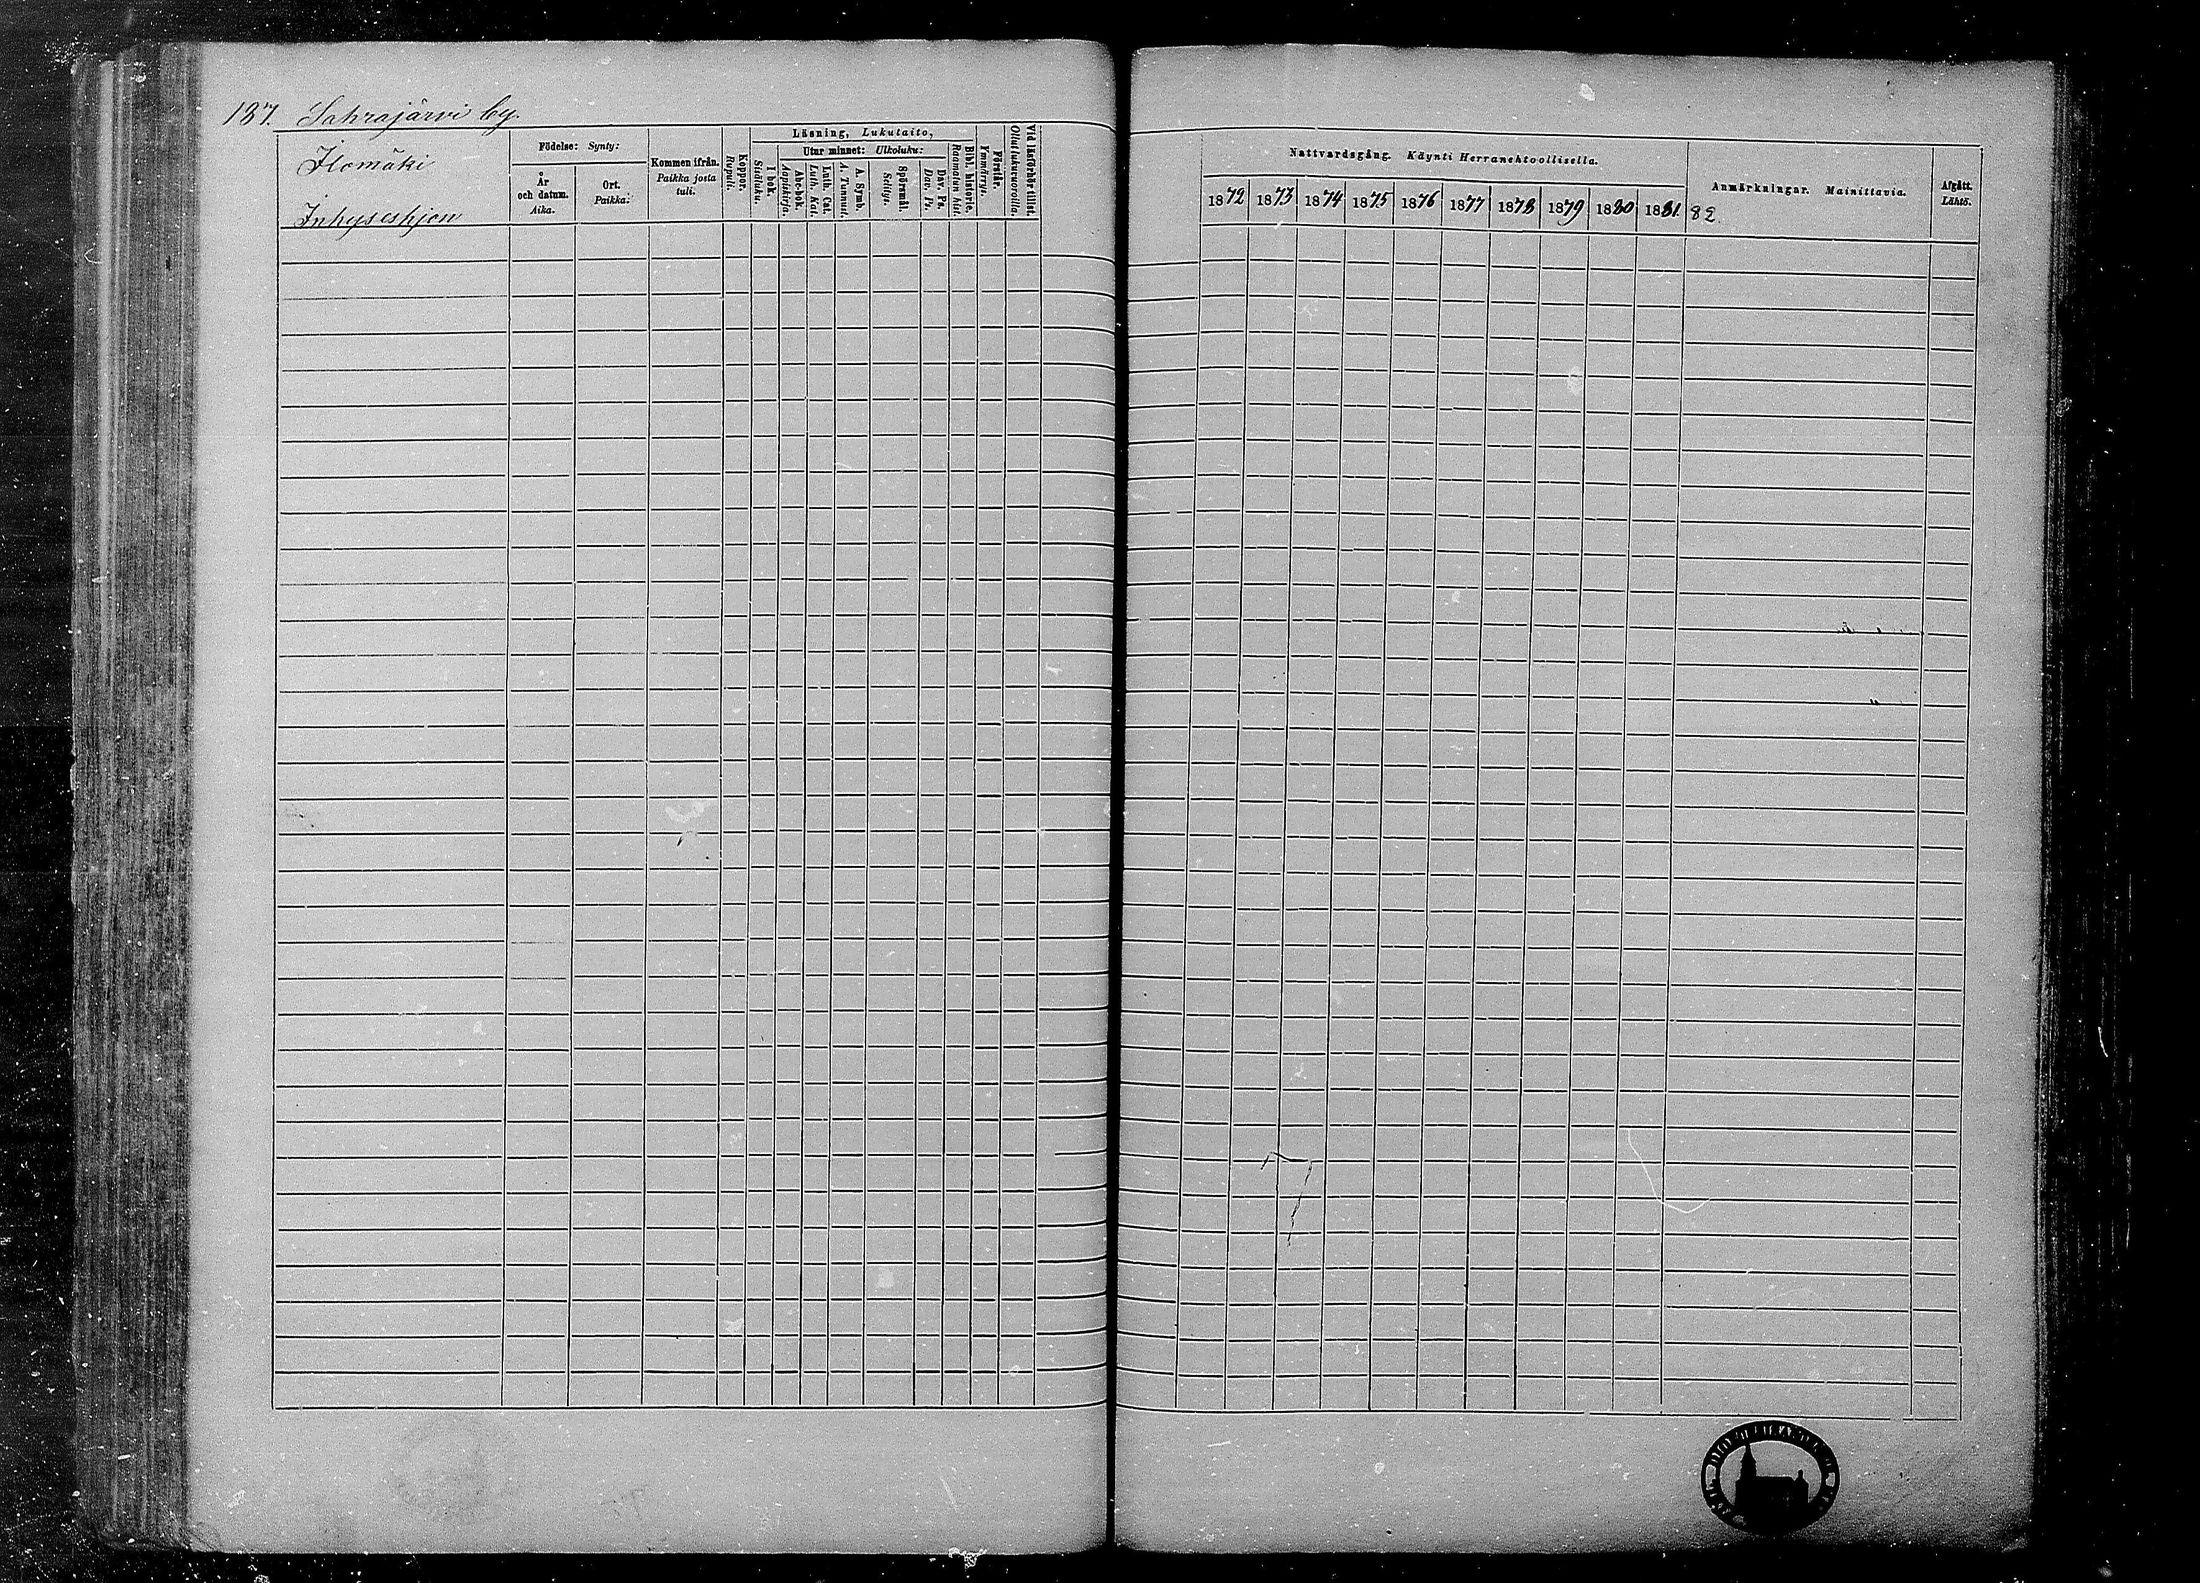 187. Sahrajärvi by.
Ilomäki
Inhyseshjon
Födelse: Synty:
År och datum. Aika.
Ort. Paikka:
Kommen ifrån. Paikka josta tuli.
Koppor. Rupuli.
Läsning, Lukutaito,
I bok. Sisäluku.
Utur minnet: Ulkoluku:
Abc-bok. Aapiskirja.
Luth. Cat. Luth. Kat.
A. Symb. A. Tunnust.
Spörsmål. Selitys.
Dav. Ps. Dav. Ps.
Bibl. historie. Raamatun hist.
Förstår. Ymmärrys.
Vid läsförhör tillst. Ollut lukuvuoroilla.
Nattvardsgång. Käynti Herranehtoollisella.
1872 1873 1874 1875 1876 1877 1878 1879 1880 1881 82.
Anmärkningar. Mainittavia.
Afgått. Lähtö.